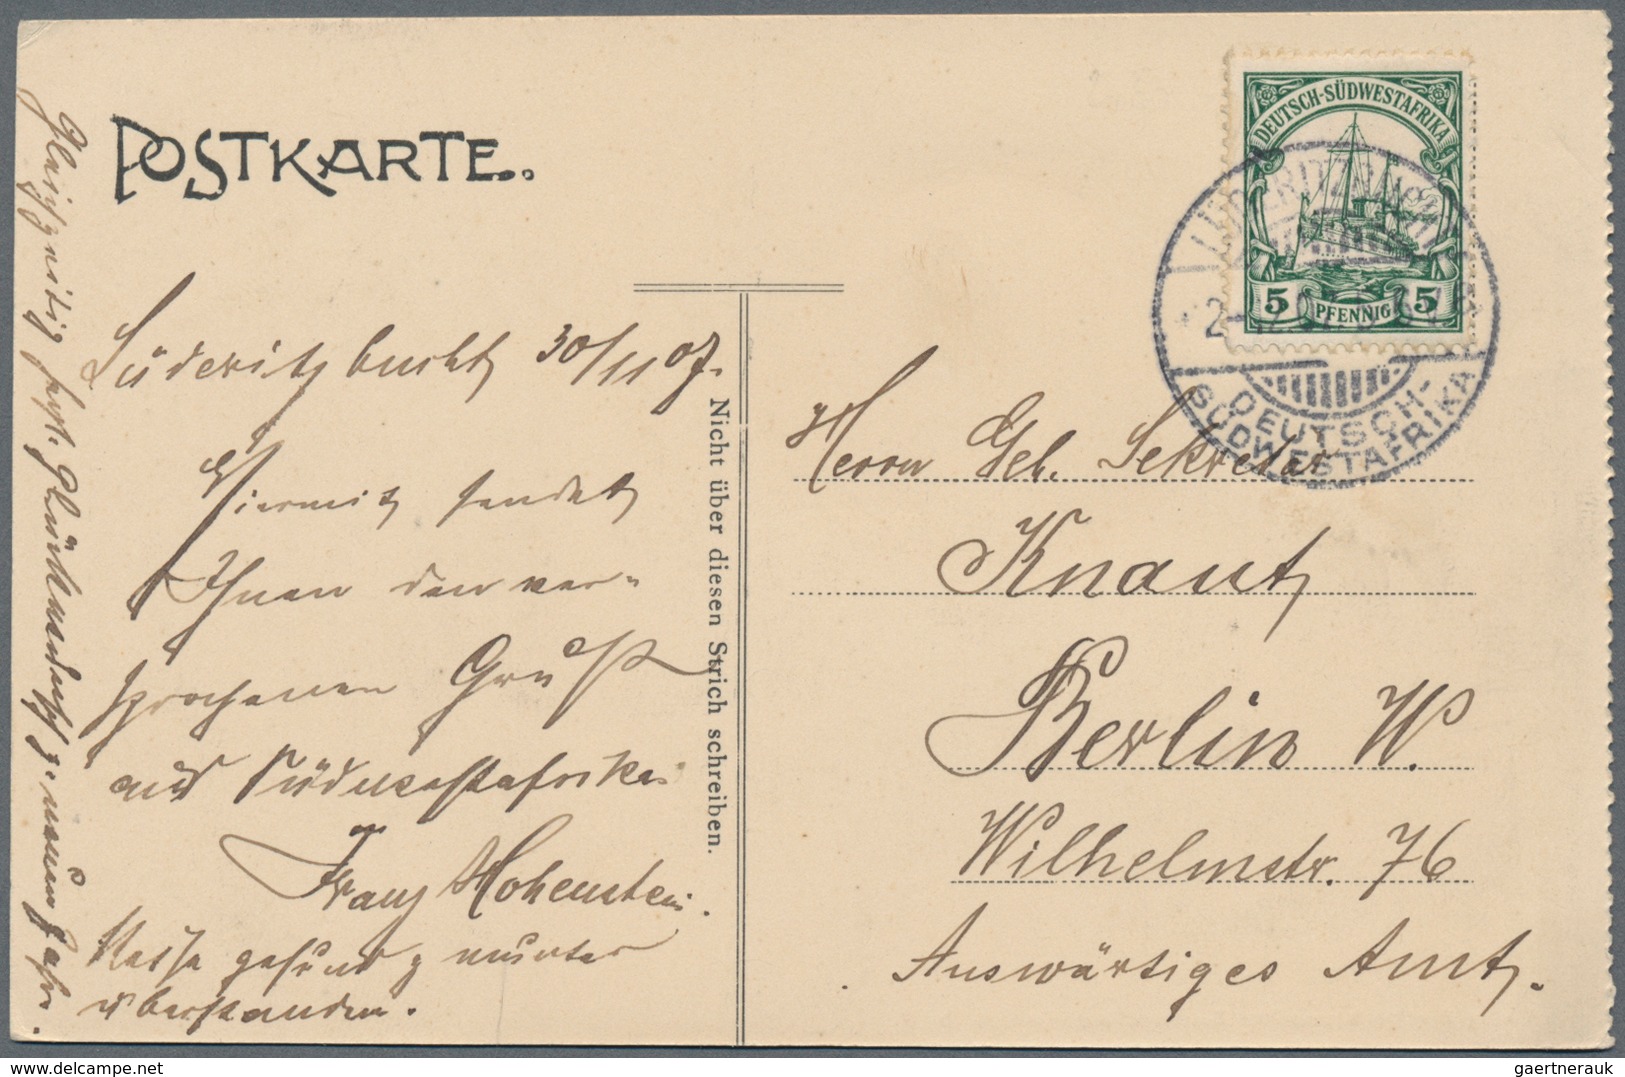 POSTKARTE..
DEUTSCH-SÜDWESTAFRIKA
5 PFENNIG 5
LÜDERITZBUCHT
DEUTSCH-
SÜDWESTAFRIKA
Lüderitzbucht, 30/11 07.
Hiermit sendet
Ihnen den ver-
sprochenen Gruß
aus Südwestafrika
Franz Hohenstein.
Reise gesund & munter
überstanden.
Gleichzeitig Glückwunsch z. neuen Jahr.
Nicht über diesen Strich schreiben.
Herrn Geh. Sekretär
Knaut,
Berlin W.
Wilhelmstr. 76
Auswärtiges Amt.
gaertnerauk